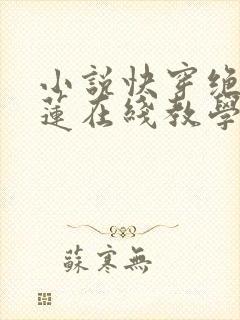 小説快穿绝
蓮在綫教學
蘇寒無